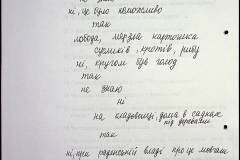 не знаю
ні, це було неможливо
так
лобода, мерзла картошка
сусликів, кротів, рибу
ні, кругом був голод
так
не знаю
ні
на кладовищі, дома в садках
під деревами
так
ні, при радянській владі про це мовчали